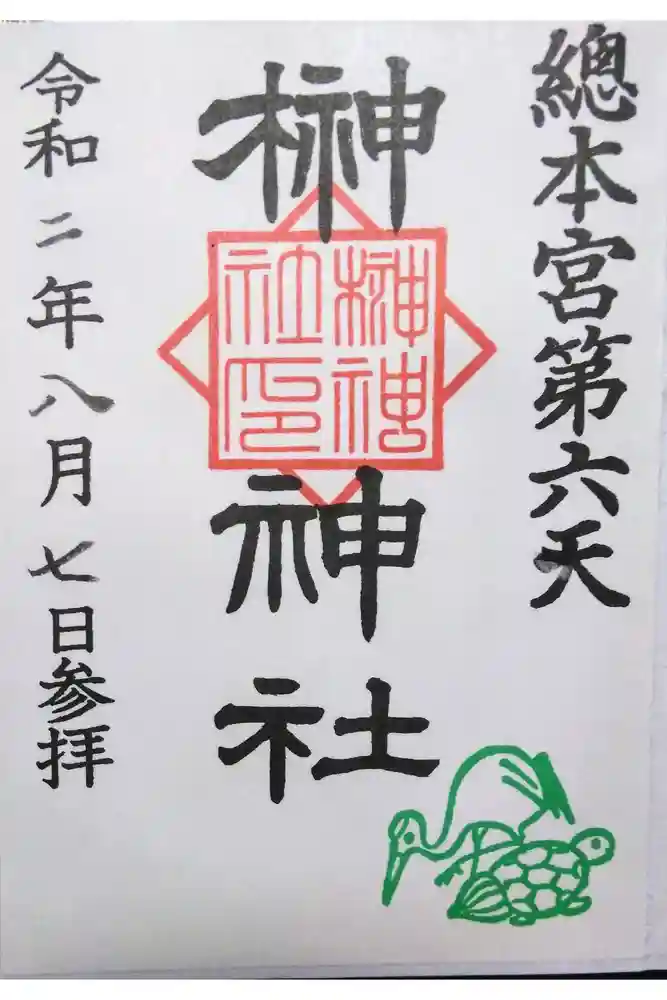 總本宮第六天
榊神社
榊神
社印
令和二年八月七日参拝